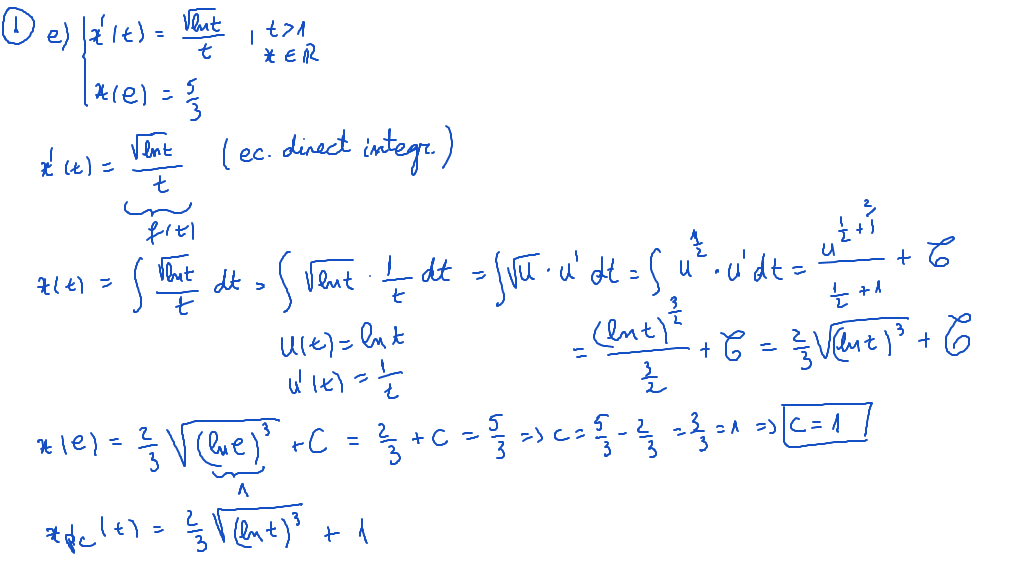 ① e) { x'(t) = √(ln t) / t , t > 1
x ∈ ℝ
x(e) = 5/3
x'(t) = √(ln t) / t (ec. direct integr.)
f(t)
x(t) = ∫ √(ln t) / t dt = ∫ √(ln t) · 1/t dt = ∫ √u · u' dt = ∫ u^(1/2) · u' dt = u^(1/2 + 1) / (1/2 + 1) + C
u(t) = ln t
u'(t) = 1/t
= (ln t)^(3/2) / (3/2) + C = 2/3 √((ln t)^3) + C
x(e) = 2/3 √((ln e)^3) + C = 2/3 + C = 5/3 => C = 5/3 - 2/3 = 3/3 = 1 => C = 1
1
x_pc(t) = 2/3 √((ln t)^3) + 1